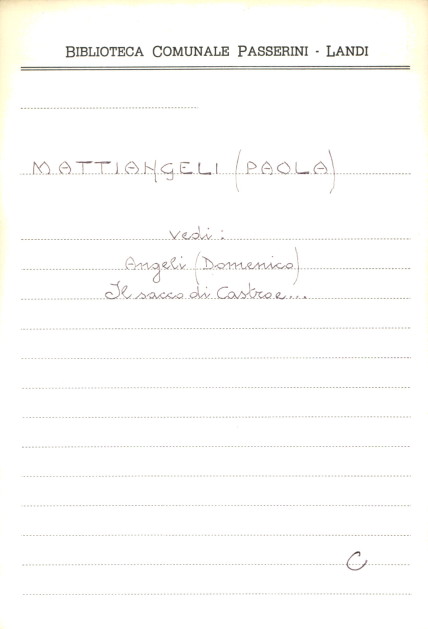 BIBLIOTECA COMUNALE PASSERINI - LANDI
MATTIANGELI (PAOLA)
vedi:
Angeli (Domenico)
Il sacco di Castro e...
C